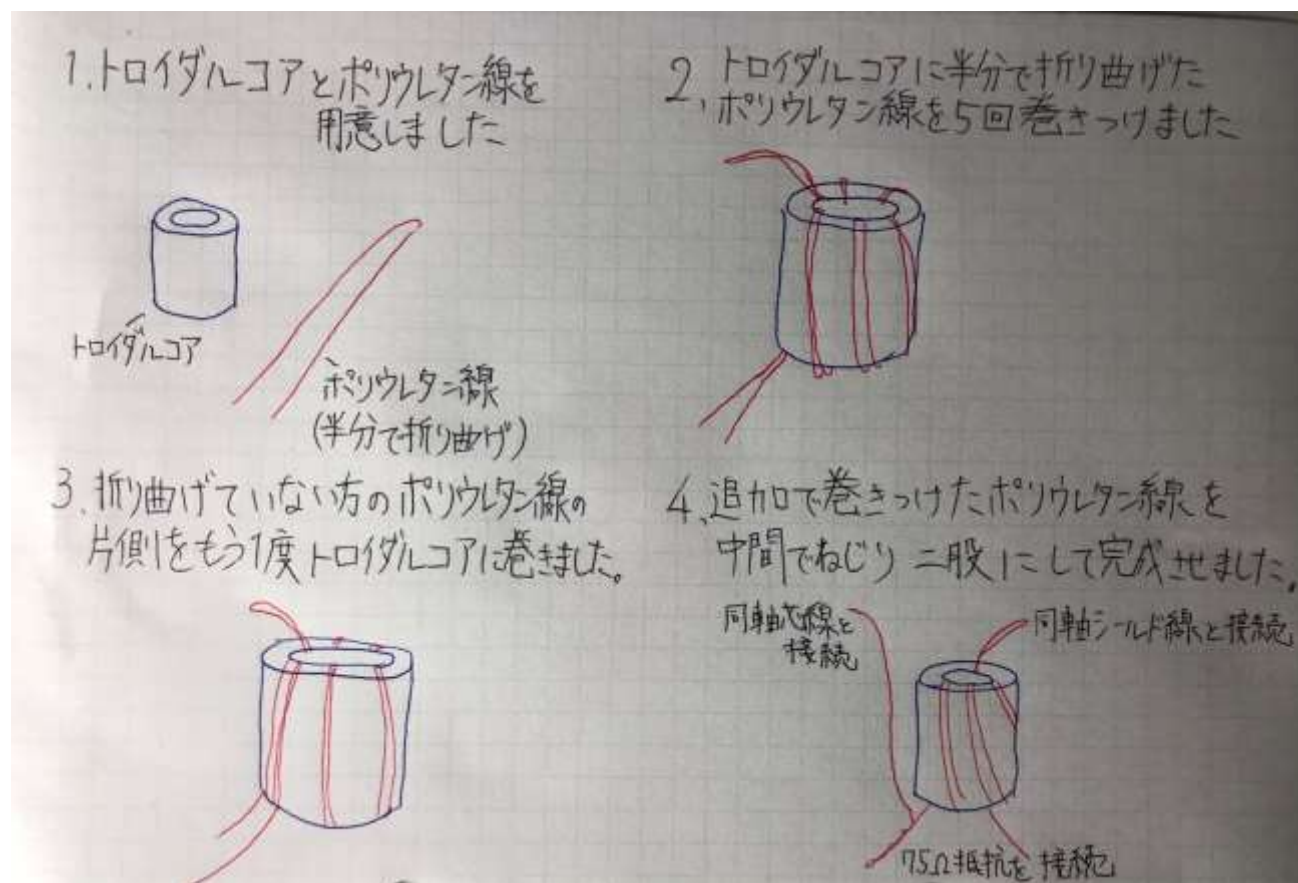 1.トロイダルコアとポリウレタン線を
用意しました
トロイダルコア
ポリウレタン線
(半分で折り曲げ)
2、トロイダルコアに半分で折り曲げた
ポリウレタン線を5回巻きつけました
3、折り曲げていない方のポリウレタン線の
片側をもう1度トロイダルコアに巻きました。
4、追加で巻きつけたポリウレタン線を
中間でねじり二股にして完成させました。
同軸芯線と
接続
同軸シールド線と接続
75Ω抵抗を接続